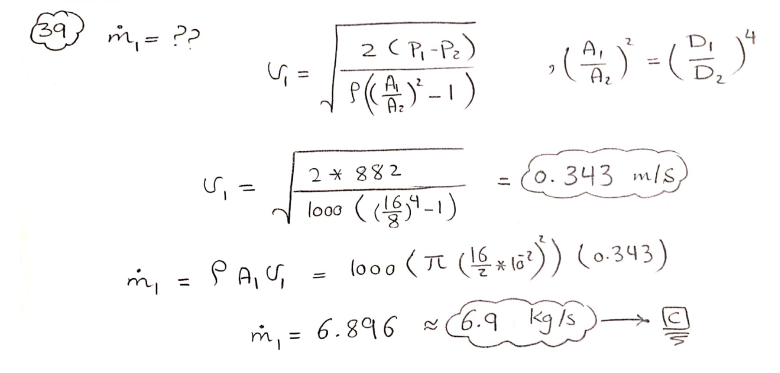 39 ṁ₁ = ??
υ₁ = √(2 (P₁-P₂) / ρ((A₁/A₂)² - 1)) , (A₁/A₂)² = (D₁/D₂)⁴
υ₁ = √(2 * 882 / 1000 ((16/8)⁴ - 1)) = 0.343 m/s
ṁ₁ = ρ A₁ υ₁ = 1000 (π (16/2 * 10⁻²)²) (0.343)
ṁ₁ = 6.896 ≈ 6.9 kg/s → C